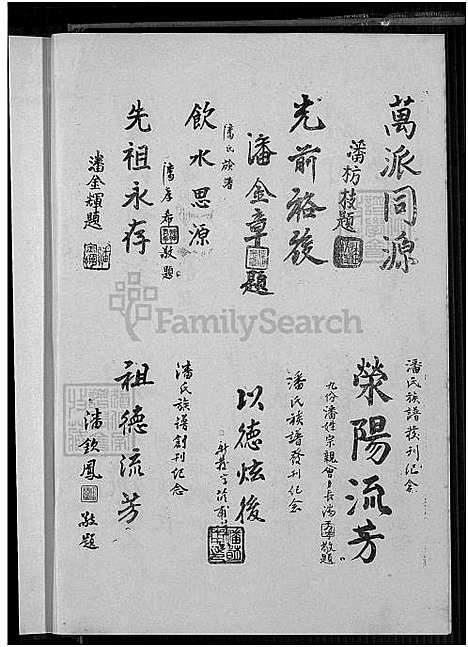 萬派同源
潘枋枝題
光前裕後
潘氏族譜
潘金章題
飲水思源
敬題
先祖永存
潘金輝題
FamilySearch
潘氏族譜發刊紀念
榮陽流芳
九份潘姓宗親會會長潘
敬題
潘氏族譜發刊紀念
以德炫後
潘氏族譜創刊紀念
祖德流芳
潘欽鳳敬題